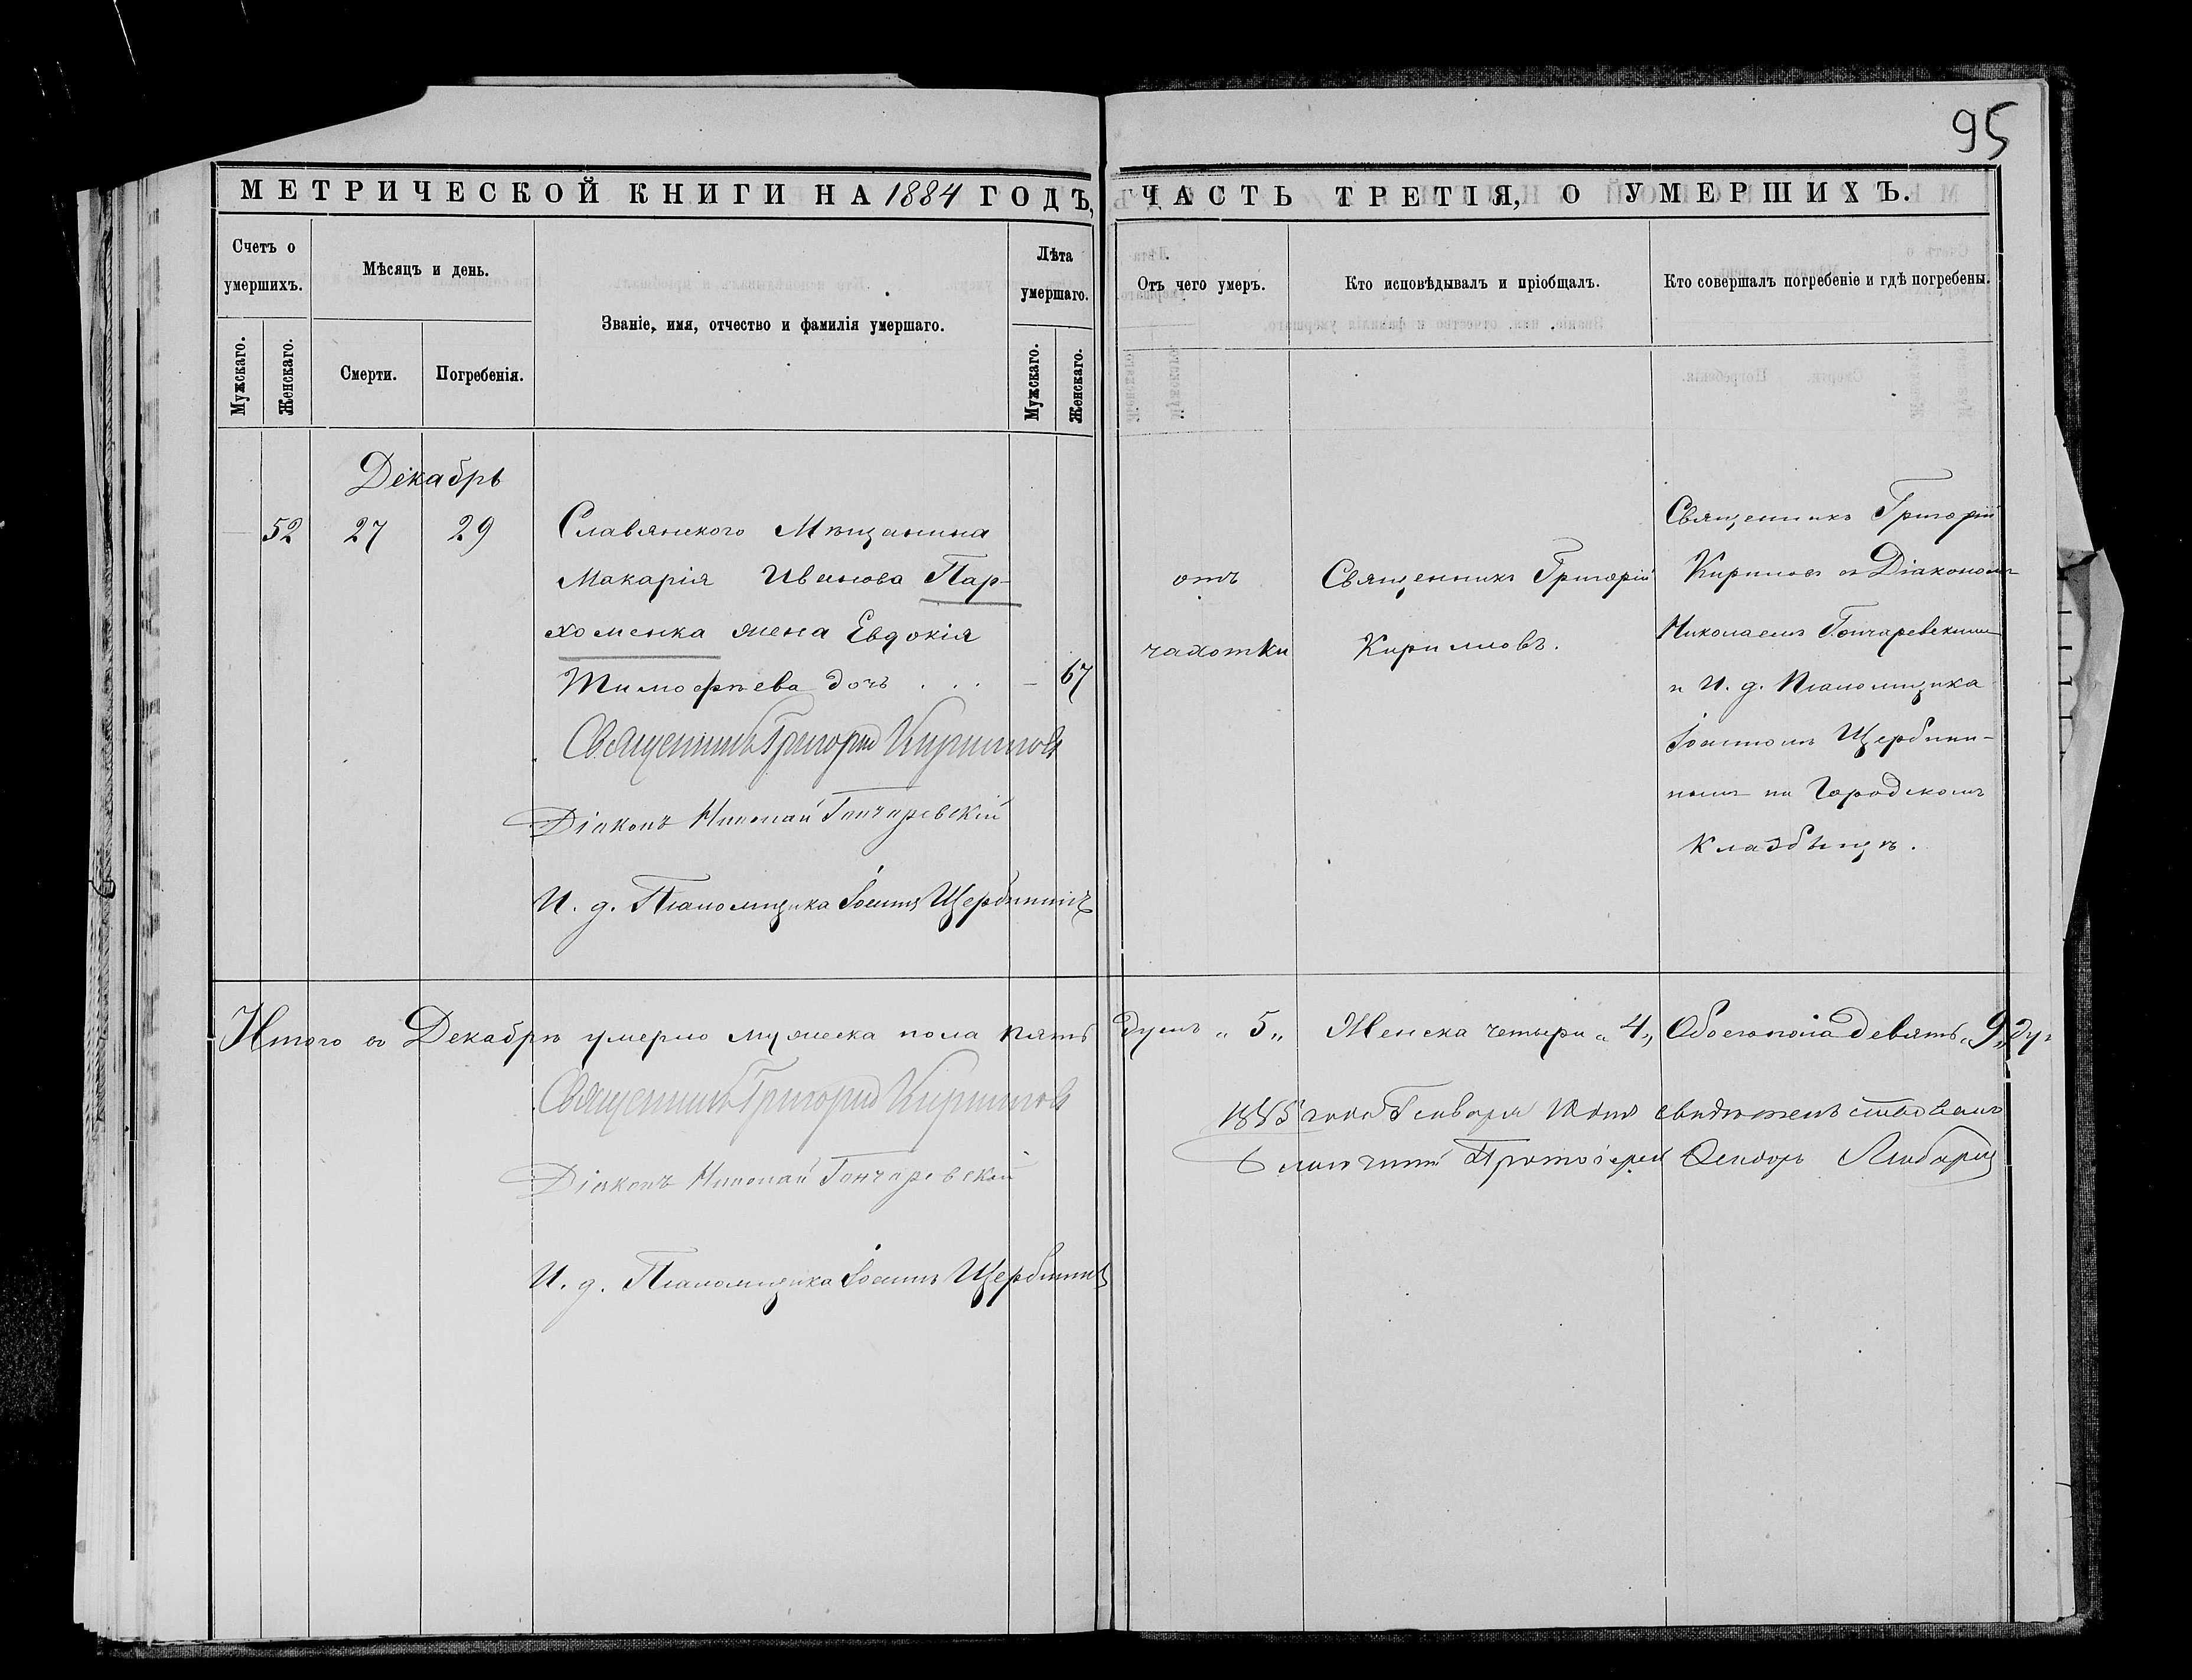 95
МЕТРИЧЕСКОЙ КНИГИ НА 1884 ГОДЪ,
ЧАСТЬ ТРЕТІЯ, О УМЕРШИХЪ.
Счетъ о
умершихъ.
Мужскаго.
Женскаго.
Мѣсяцъ и день.
Смерти.
Погребенія.
Званіе, имя, отчество и фамилія умершаго.
Лѣта
умершаго.
Мужскаго.
Женскаго.
Отъ чего умеръ.
Кто исповѣдывалъ и пріобщалъ.
Кто совершалъ погребеніе и гдѣ погребены.
Декабрь
52 27 29
Славянского Мѣщанина
Макарія Иванова Пар-
хоменка жена Евдокія
Тимофѣева дочь . . . – 67
отъ
чахотки
Священникъ Григорій
Кирилловъ.
Священникъ Григорій
Кириловъ съ Діакономъ
Николаемъ Гончаревскимъ
и И. д. Псаломщика
Іоанномъ Щербини-
нымъ на Городскомъ
Кладбищѣ.
Священникъ Григорій Кирилловъ
Діаконъ Николай Гончаревскій
И. д. Псаломщика Іоаннъ Щербининъ
Итого въ Декабрѣ умерло мужеска пола пять душъ „ 5 „ Женска четыри „ 4 „ Обоего пола девять „ 9 „ ду:
Священникъ Григорій Кирилловъ
Діаконъ Николай Гончаревскій
И. д. Псаломщика Іоаннъ Щербининъ
1885 года Генваря дня свидѣтельствовалъ
Благочинный Протоіерей